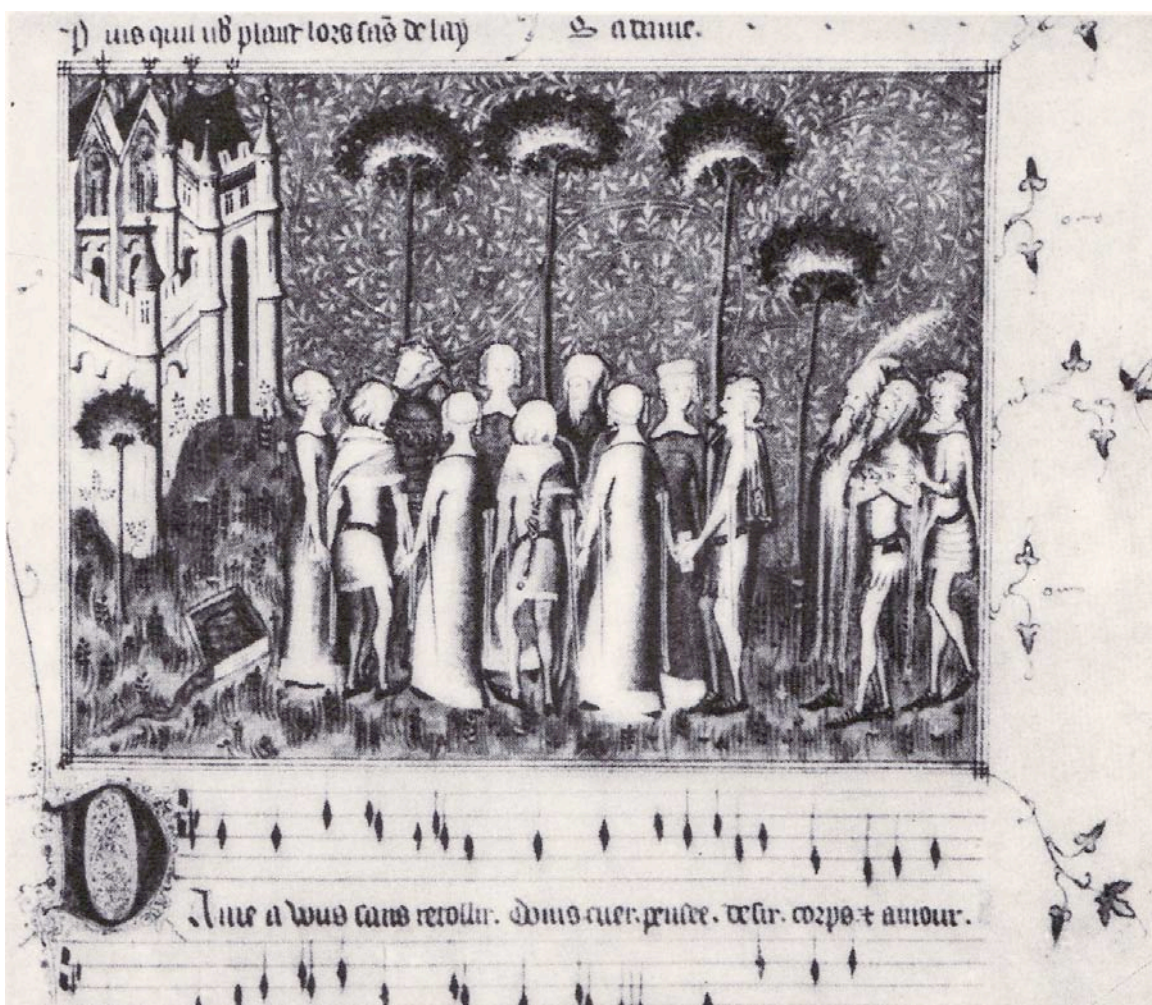 Puis quil vo9 plaist lors sãs delay
DAme a vous sans retollir. Doins cuer. pensee. desir. corps ⁊ amour.